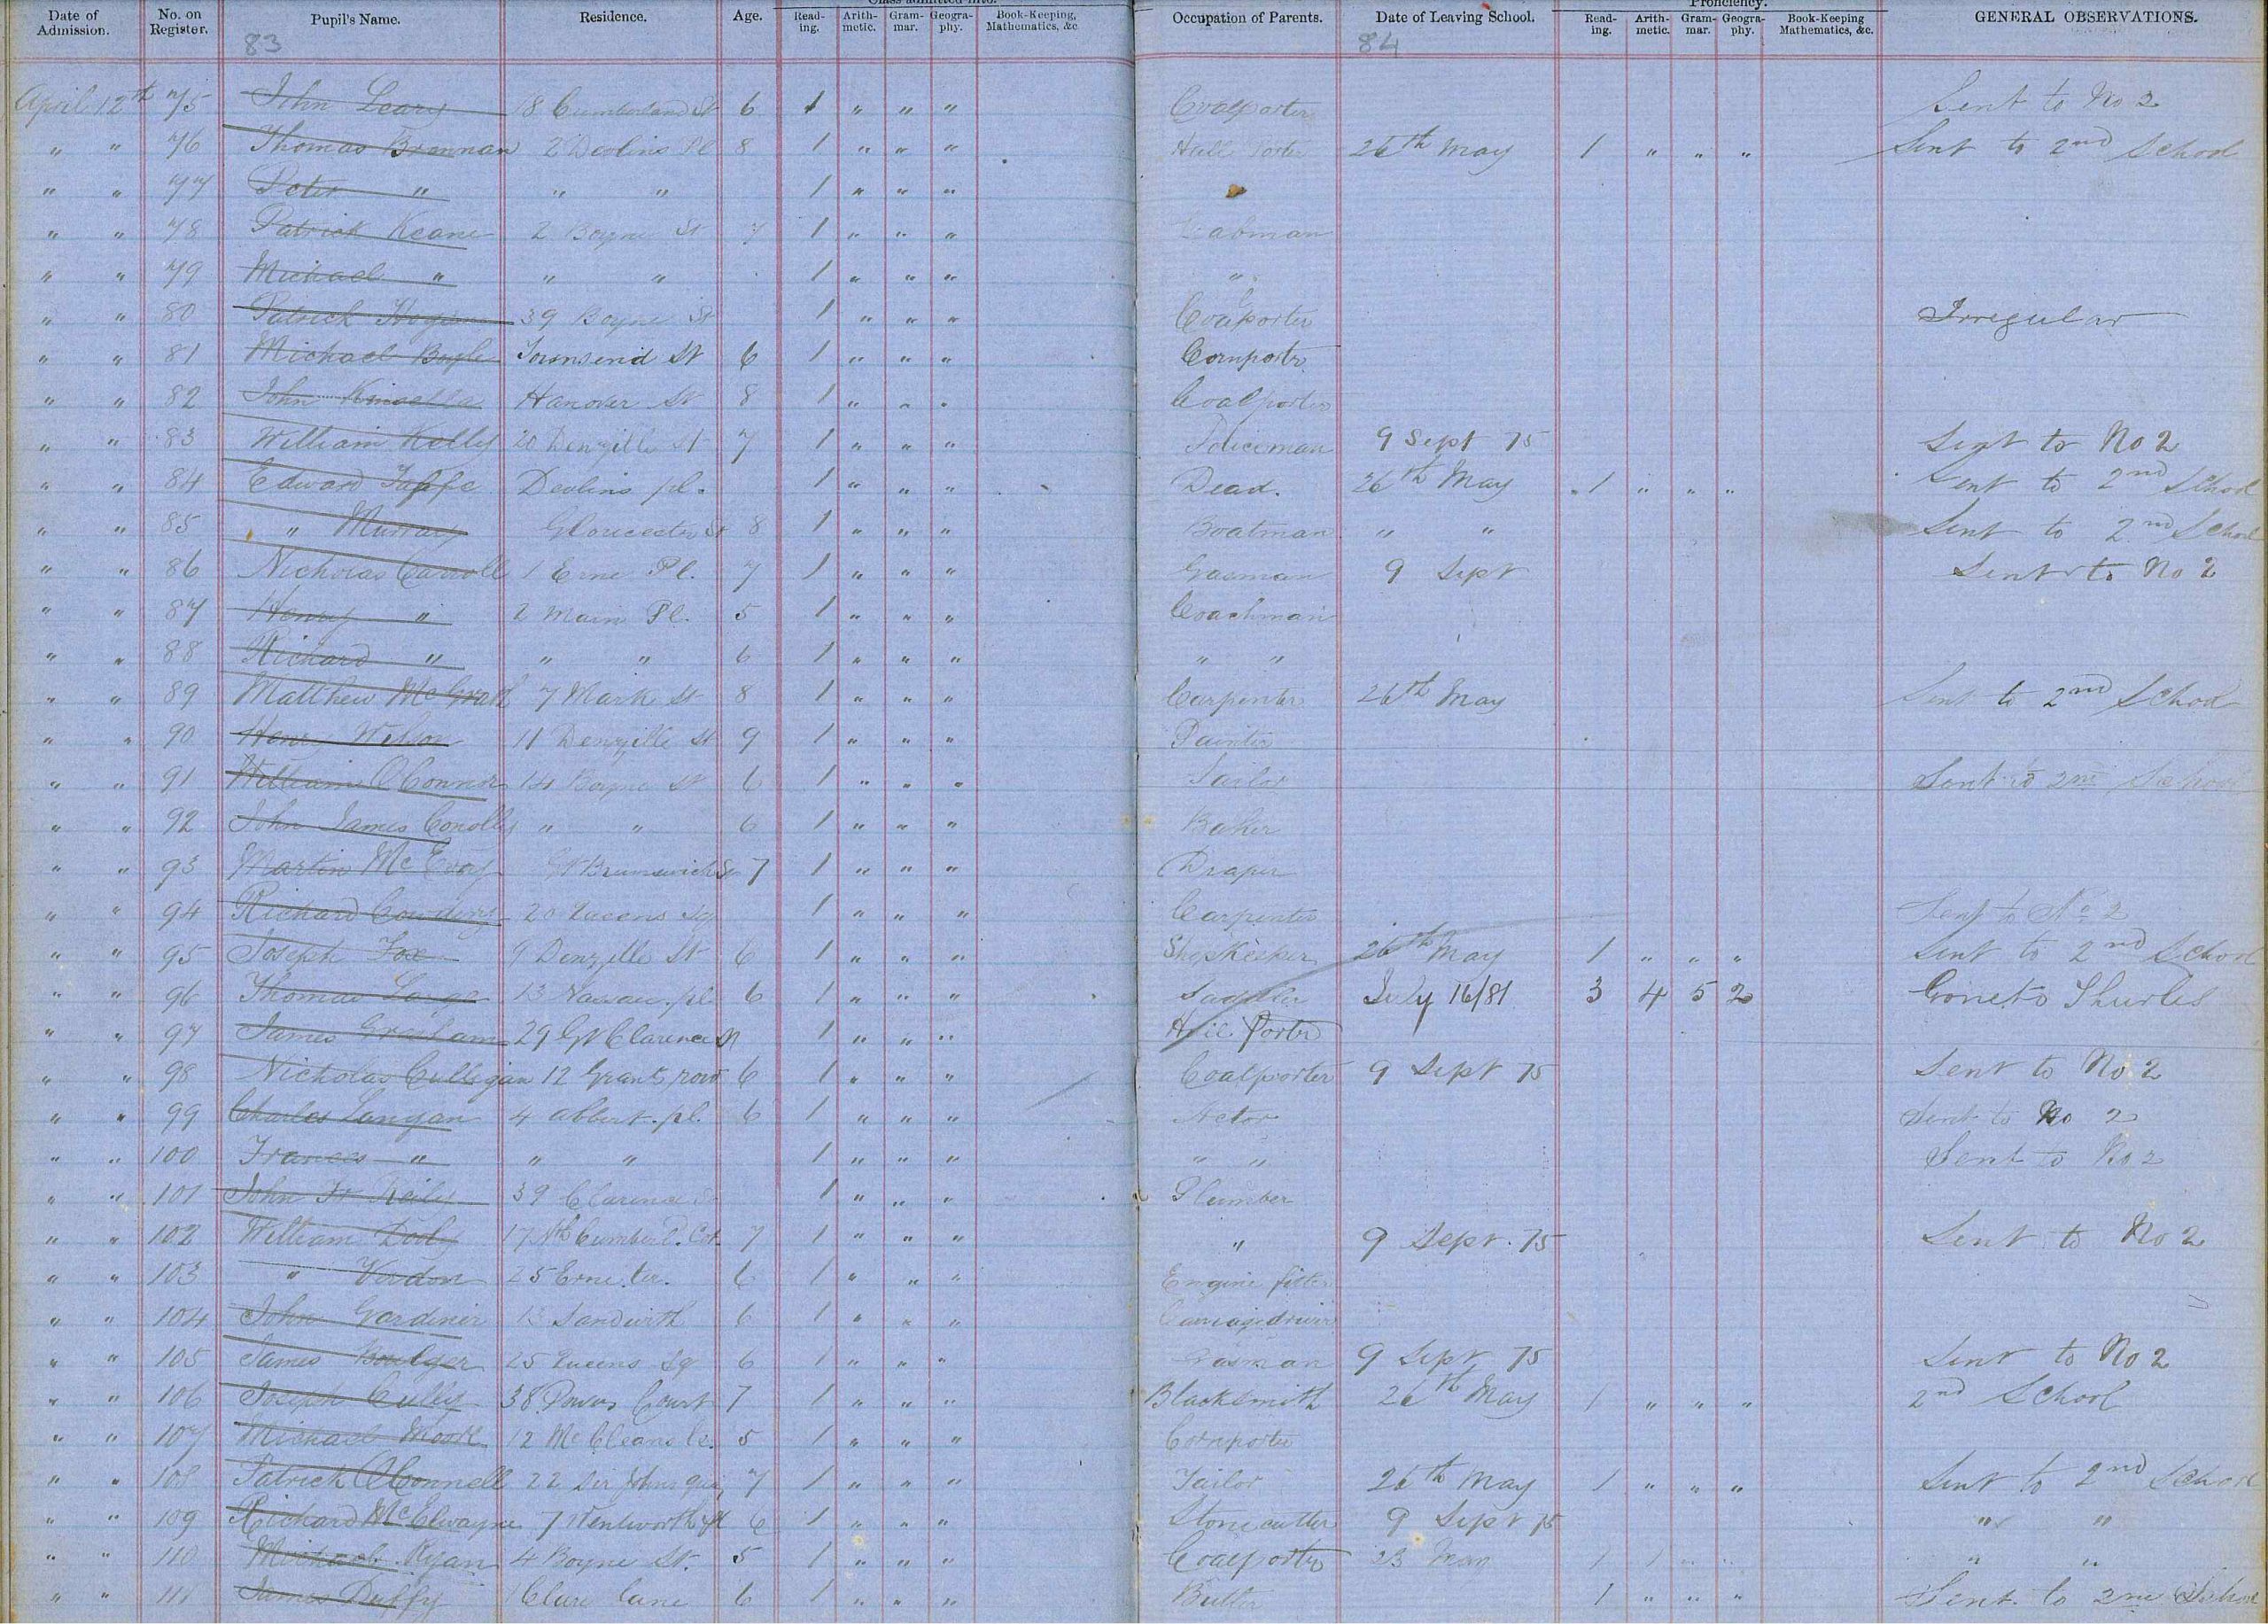 Class admitted into. Proficiency.
Date of Admission. No. on Register. Pupil's Name. Residence. Age. Read-ing. Arith-metic. Gram-mar. Geogra-phy. Book-Keeping, Mathematics, &c Occupation of Parents. Date of Leaving School. Read-ing. Arith-metic. Gram-mar. Geogra-phy. Book-Keeping Mathematics, &c. GENERAL OBSERVATIONS.
83 84
April 12th 75 John Leary 18 Cumberland St 6 1 " " " Coalporter Sent to No 2
" " 76 Thomas Brennan 2 Devlins Pl 8 1 " " " Hall Porter 26th May 1 " " " Sent to 2nd School
" " 77 Peter " " " 1 " " "
" " 78 Patrick Keane 2 Boyne St 7 1 " " " Cabman
" " 79 Michael " " " 1 " " " "
" " 80 Patrick Hogan 39 Boyne St 1 " " " Coalporter Irregular
" " 81 Michael Townsend St 6 1 " " " Cornporter
" " 82 John Kinsella Hanover St 8 1 " " " Coalporter
" " 83 William Kelly 20 Denzille St 7 1 " " " Policeman 9 Sept 75 Sent to No 2
" " 84 Edward Taffe Devlins pl. 1 " " " Dead. 26th May 1 " " " Sent to 2nd School
" " 85 " Murray Gloucester St 8 1 " " " Boatman " " Sent to 2nd School
" " 86 Nicholas Carroll 1 Erne Pl. 7 1 " " " Gasman 9 Sept Sent to No 2
" " 87 Henry " 2 Main Pl. 5 1 " " " Coachman
" " 88 Richard " " " 6 1 " " " " "
" " 89 Matthew McGrath 7 Mark St 8 1 " " " Carpenter 26th May Sent to 2nd School
" " 90 Henry Wilson 11 Denzille St 9 1 " " " Painter
" " 91 William OConnor 14 Boyne St 6 1 " " " Tailor Sent to 2nd School
" " 92 John James Conolly " " 6 1 " " " Baker
" " 93 Martin McEvoy Gt Brunswick St 7 1 " " " Draper
" " 94 Richard 20 Queens Sq 1 " " " Carpenter Sent to No 2
" " 95 Joseph Fox 9 Denzille St 6 1 " " " Shopkeeper 26th May 1 " " " Sent to 2nd School
" " 96 Thomas Large 13 Nassau pl 6 1 " " " Saddler July 16/81 3 4 5 2 Gone to Thurles
" " 97 James Graham 29 Gt Clarence St 1 " " " Hall Porter
" " 98 Nicholas Culligan 12 Grants row 6 1 " " " Coalporter 9 Sept 75 Sent to No 2
" " 99 Charles Langan 4 Albert pl. 6 1 " " " Actor Sent to No 2
" " 100 Frances " " " 1 " " " " " Sent to No 2
" " 101 John Reily 39 Clarence St 1 " " " Plumber
" " 102 William Doody 17 Nth Cumberl. Cot. 7 1 " " " " 9 Sept. 75 Sent to No 2
" " 103 " Verdon 25 Erne ter. 6 1 " " " Engine fitter
" " 104 John Gardiner 13 Sandwith 6 1 " " " Carriagedriver
" " 105 James Boulger 25 Queens Sq 6 1 " " " Gasman 9 Sept 75 Sent to No 2
" " 106 Joseph Cully 38 Powers Court 7 1 " " " Blacksmith 26th May 1 " " " 2nd School
" " 107 Michael Moore 12 McCleans la. 5 1 " " " Cornporter
" " 108 Patrick OConnell 22 Sir Johns quy 7 1 " " " Tailor 26th May 1 " " " Sent to 2nd School
" " 109 Richard McElwayne 7 Wentworth pl 6 1 " " " Stonecutter 9 Sept 75 " "
" " 110 Michael Ryan 4 Boyne St. 5 1 " " " Coalporter 23 1 1 " " " "
" " 111 James Duffy 1 Clare lane 6 1 " " " Butler 1 " " " Sent to 2nd School